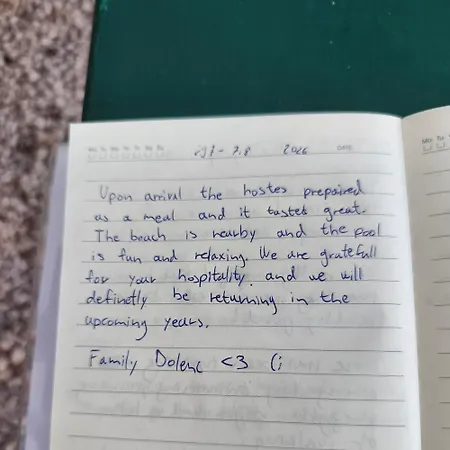 Mo Tu We Th Fr Sa Su
7.8 2026 DATE
Mo Tu
Upon arrival the hostes prepaired
as a meal and it tasted great.
The beach is nearby and the pool
is fun and relaxing. We are gratefull
for your hospitality. and we will
definetly be returning in the
upcoming years.
Family Dolenc <3 (: